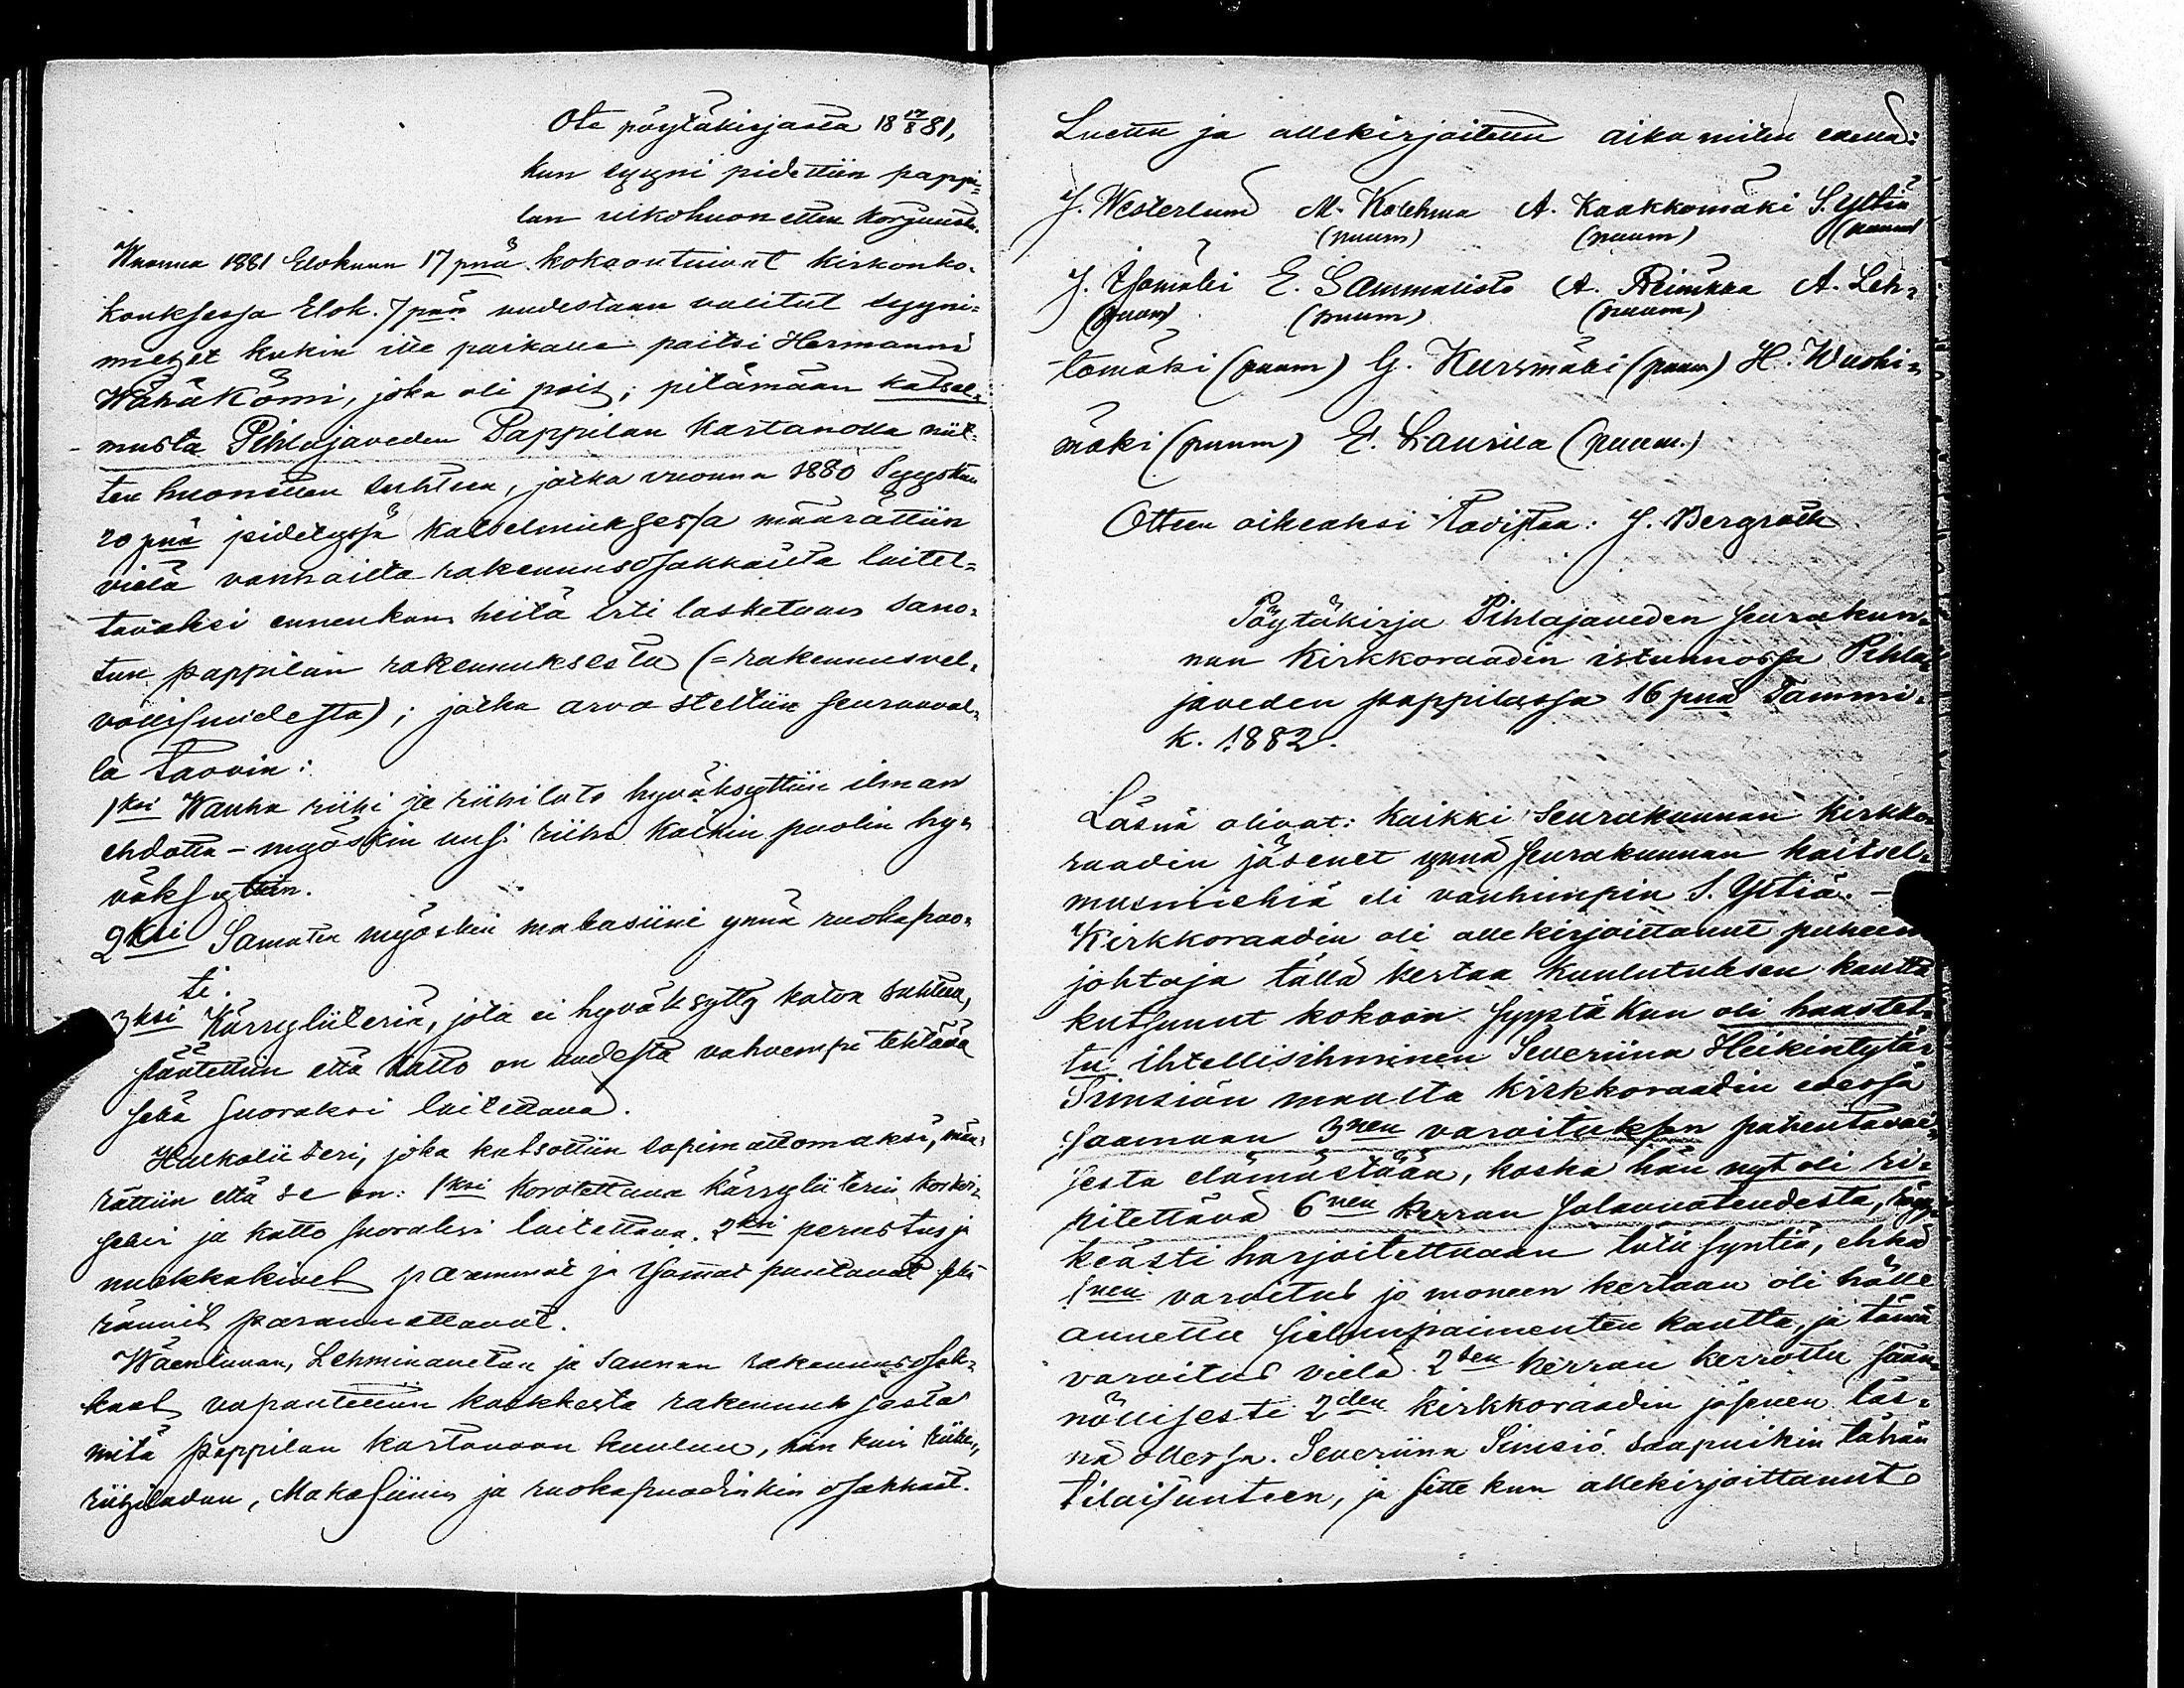 Ote pöytäkirjasta 18 17/8 81,
kun syyni pidettiin pappi=
lan ulkohuonetten korjuusta.
Wuonna 1881 Elokuun 17 pnä kokoontuivat kirkonko=
kouksessa Elok. 7 pnä uudestaan valitut syyni=
miehet kukin ille paikalle paitsi Hermanni
Wähäkömi, joka oli pois; pitämään katsel=
musta Pihlajaveden Pappilan kartanolla niit=
ten huonetten suhteen, jotka vuonna 1880 Syyskuu
20 pnä pidetyssä katselmuksessa määrättiin
vielä vanhoilta rakennusosakkailta laitet=
tavaksi ennenkun heitä irti lasketaan sano=
tun pappilan rakennuksesta (=rakennusvel=
vollisuudesta); jotka arvosteltiin seuraaval=
la tavoin:
1ksi Wanha riihi ja riihilato hyväksyttiin ilman
ehdotta - myöskin uusi riihi kaikin puolin hy=
väksyttiin.
2ksi Samaten myöskin makasiini ynnä ruokapuo=
ti.
3ksi Kärryliiteriä, jota ei hyväksytty katon suhteen,
päätettiin että katto on uudesta vahvempi tehtävä
sekä suoraksi laitettava.
Halkoliiteri, joka katsottiin sopimattomaksi, mää=
rättiin että se on: 1ksi korotettava kärryliiterin korkui=
seksi ja katto suoraksi laitettava. 2ksi perustus ja
nurkkakivet paremmat ja isommat pantavat sekä
rännit parannettavat.
Wäentuvan, Lehminavetan ja saunan rakennusosak=
kaat vapautettiin kaikkesta rakennuksesta
mitä pappilan kartanoon kuuluu, niin kuin riihen,
riihiladon, Makasiinin ja ruokapuodinkin osakkaat.
Luettu ja allekirjoitettu aika miten edellä:
J. Westerlund M. Kolehma A. Kaakkomäki S. Yltiä
(puum) (puum) (puum)
J. Isomäki E. Sammalisto A. Reinikka A. Leh=
(puum) (puum) (puum)
tomäki (puum) G. Kursmäki (puum) H. Wuohi=
mäki (puum) E. Laurila (puum.)
Otteen oikeaksi todistaa: J. Bergroth
Pöytäkirja Pihlajaveden seurakun=
nan Kirkkoraadin istunnossa Pihla=
javeden pappilassa 16 pnä Tammi=
k. 1882.
Läsnä olivat: kaikki Seurakunnan kirkko=
raadin jäsenet ynnä seurakunnan kaitsel=
musmiehiä eli vanhimpia S. Yltiä. -
Kirkkoraadin oli allekirjoittanut puheen
johtaja tällä kertaa kuulutuksen kautta
kutsunut kokoon syystä kun oli haastet=
tu ihtellisihminen Severiina Heikintytär
Simsiön maalta kirkkoraadin edessä
saamaan 3nen varoituksen pahentavai=
sesta elämästään, koska hän nyt oli ri=
pitettävä 6nen kerran salavuoteudesta,
keästi harjoitettuaan tätä syntiä, ehkä
1nen varoitus jo moneen kertaan oli hälle
annettu sielunpaimenten kautta, ja tämä
varoitus vielä 2sen kerran kerrottu sään=
nöllisesti 2den kirkkoraadin jäsenen läs=
nä ollessa. Severiina Simsiö saapuikin tähän
tilaisuuteen, ja sitte kun allekirjoittanut